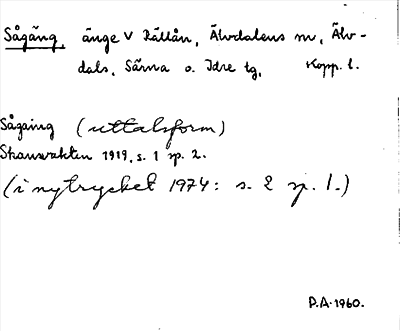 Sågäng, änge V Rällån, Älvdalens sn, Älv-
dals, Särna o. Idre tg, Kopp. l.
Sågäing (uttalsform)
Skansvakten 1919, s. 1 sp. 2.
(i nytrycket 1974: s. 2 sp. 1.)
P.A. 1960.